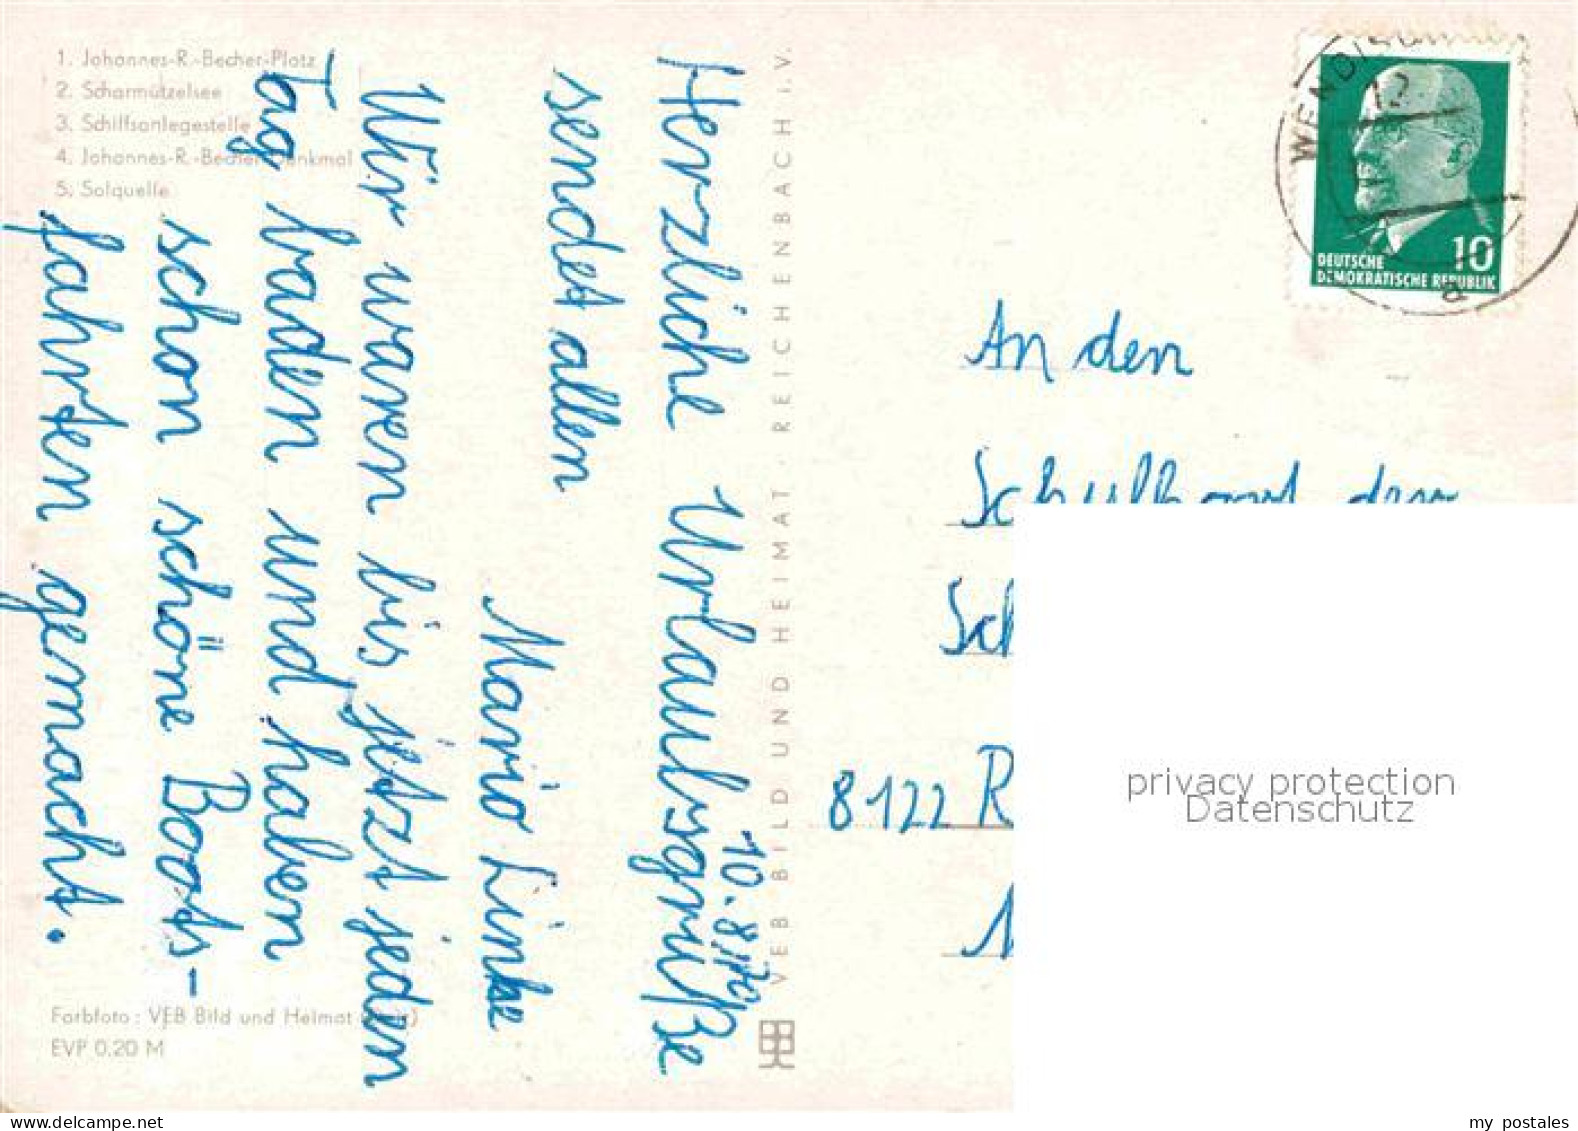 1. Johannes-R.-Becher-Platz
2. Scharmützelsee
3. Schiffsanlegestelle
4. Johannes-R.-Becher-Denkmal
5. Solquelle
10.8.70
Herzliche Urlaubsgrüße
sendet allen
Mario Linke
Wir waren bis jetzt jeden
Tag baden und haben
schon schöne Boots-
fahrten gemacht.
Farbfoto: VEB Bild und Heimat
EVP 0.20 M
VEB BILD UND HEIMAT · REICHENBACH i. V.
12
10
DEUTSCHE
DEMOKRATISCHE REPUBLIK
a
An den
Schulhort der
Sch
8122 R
1
privacy protection
Datenschutz
www.delcampe.net
my postales